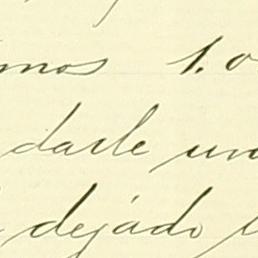 mos 1.0
darle un
dejádo